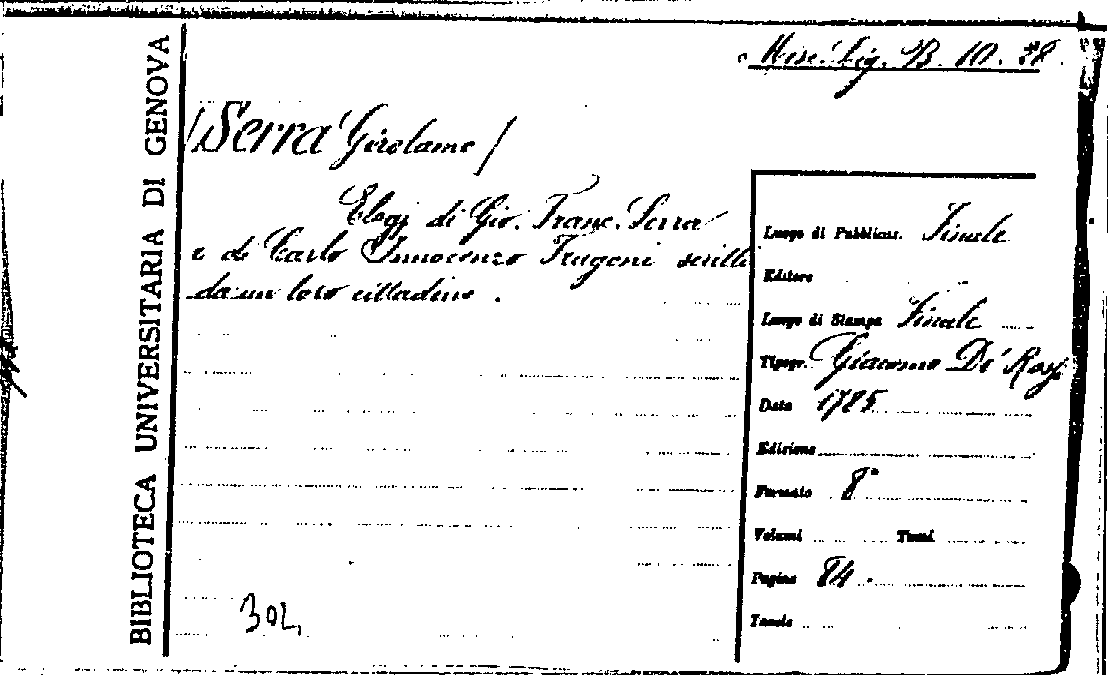 Misc. Lig. B. 10. 28.
BIBLIOTECA UNIVERSITARIA DI GENOVA
/Serra Girolamo/
Elogi di Gio. Franc. Serra
e di Carlo Innocenzo Frugoni scritti
da un loro cittadino.
Luogo di Pubblicaz. Finale
Editore
Luogo di Stampa Finale
Tipogr. Giacomo De' Rossi
Data 1785
Edizione
Formato 8°
Volumi Tomi
Pagine 84.
Tavole
302,